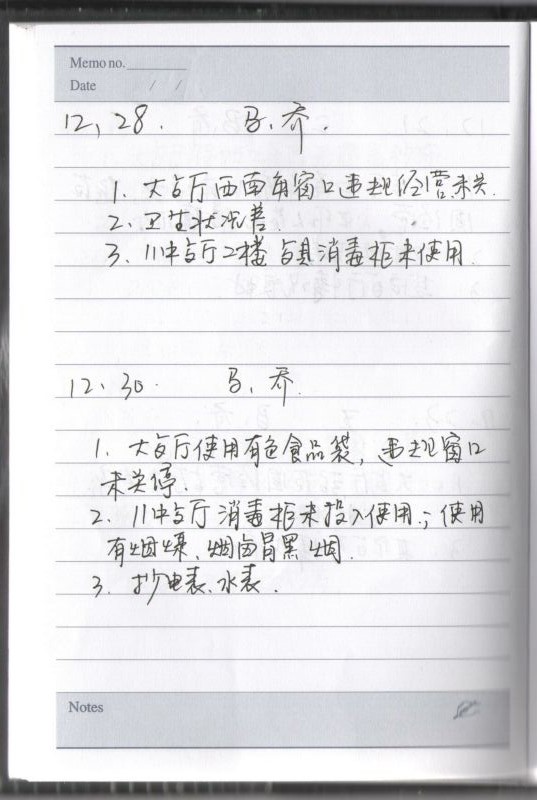 Memo no.
Date / /
12,28. 马、乔.
1. 大歺厅西南角窗口违规经营未关.
2. 卫生状况差.
3. 川中歺厅2楼歺具消毒柜未使用.
12、30. 马、乔.
1. 大歺厅使用有色食品袋, 违规窗口
未关停.
2. 川中歺厅消毒柜未投入使用.; 使用
有烟煤、烟囱冒黑烟.
3. 抄电表、水表.
Notes